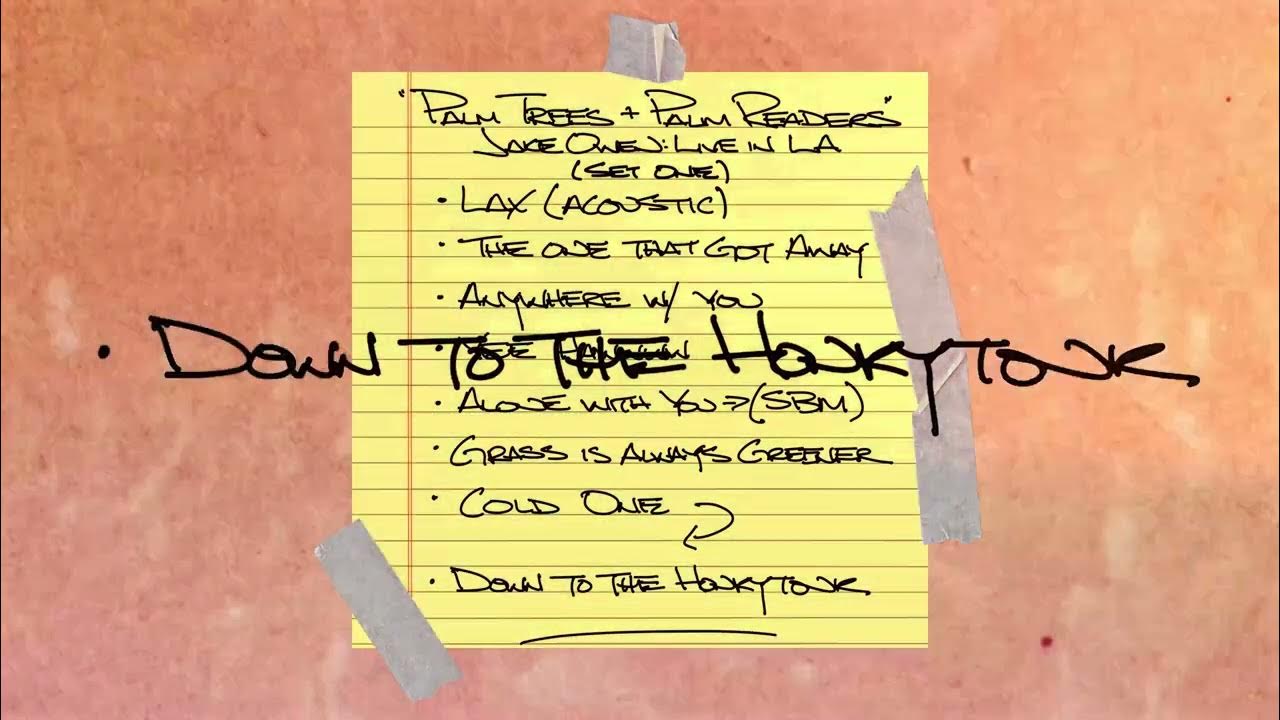 "PALM TREES + PALM READERS"
JAKE OWEN: LIVE IN LA
(SET ONE)
• LAX (ACOUSTIC)
• THE ONE THAT GOT AWAY
• ANYWHERE W/ YOU
• DOWN TO THE HONKYTONK
• ALONE WITH YOU => (SBM)
• GRASS IS ALWAYS GREENER
• COLD ONE
• DOWN TO THE HONKYTONK